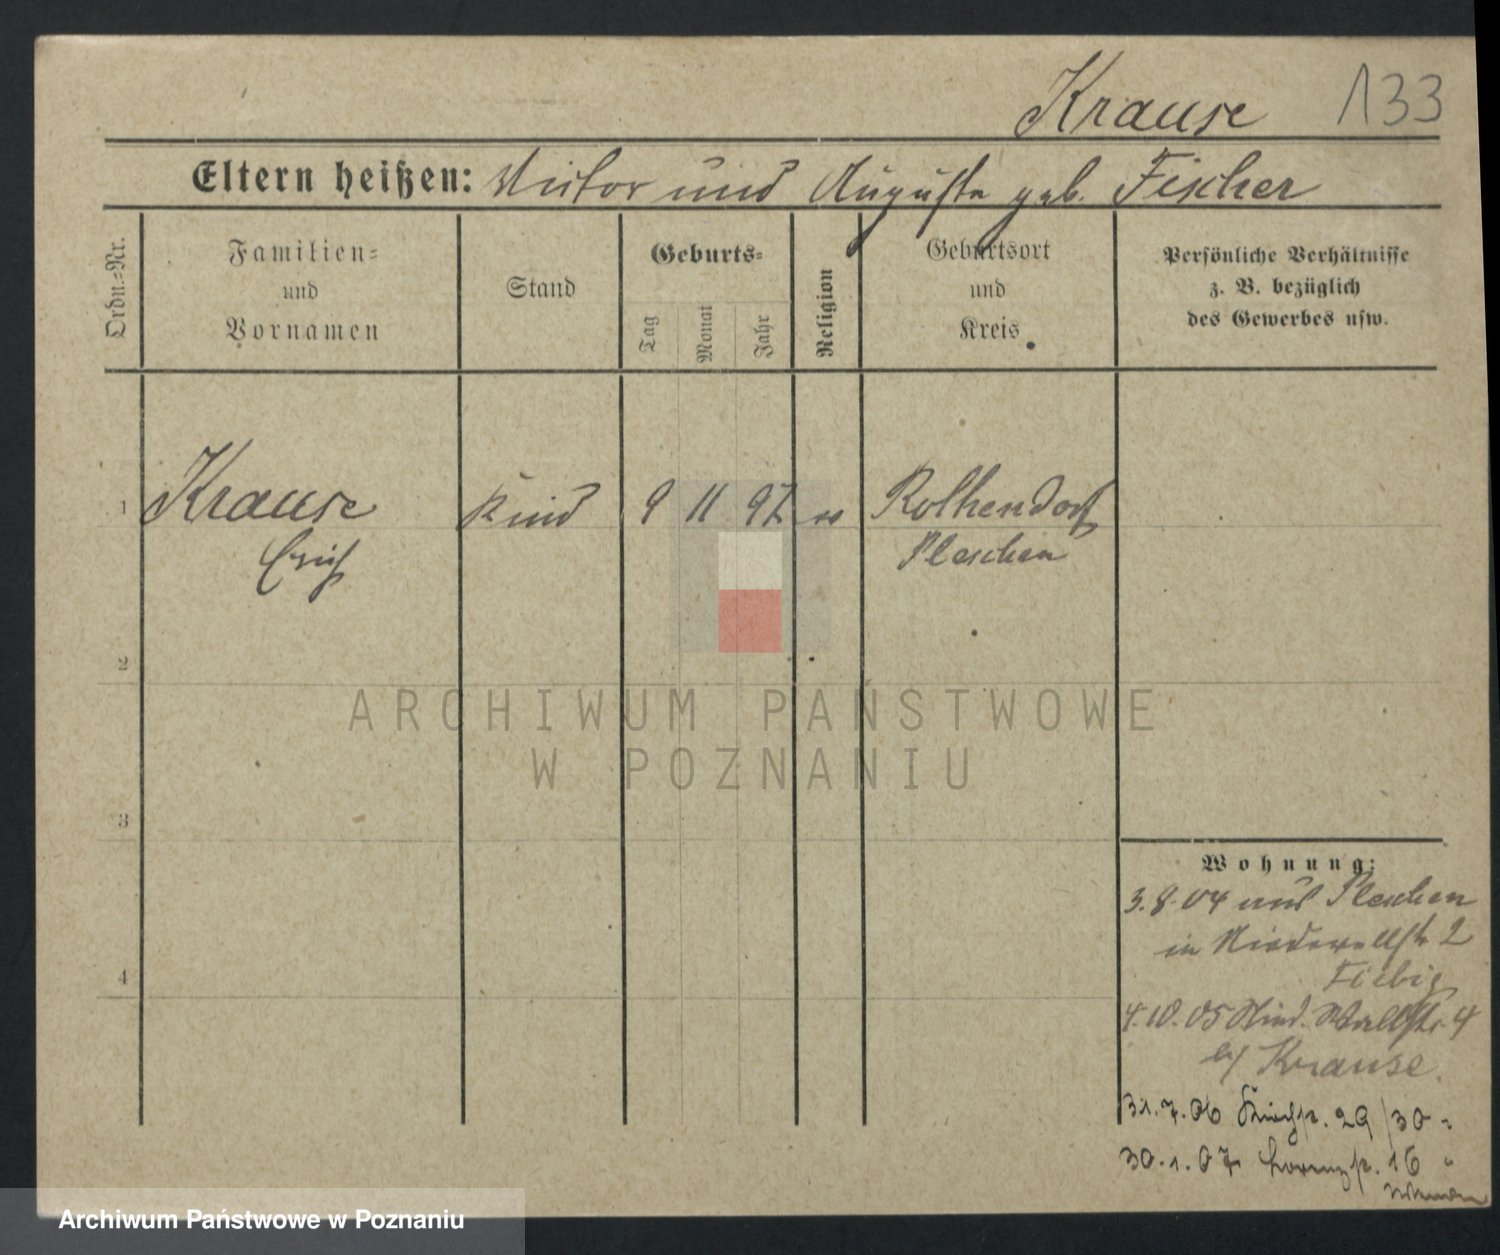 Krause 133
Eltern heißen: Victor und Auguste geb. Fischer
Ordn.-Nr.
Familien-
und
Vornamen
Stand
Geburts-
Tag
Monat
Jahr
Religion
Geburtsort
und
Kreis
Persönliche Verhältnisse
z. B. bezüglich
des Gewerbes usw.
1 Krause Kind 9 11 97 Rothendorf
Erich Pleschen
2
3
4
Wohnung:
3.8.04 aus Pleschen
in Niederwallstr 2
Fiebig
4.10.05 Nied. Wallstr. 4
b/ Krause.
31.7.06 Kirchstr. 29/30
30.1.07 Lorenzstr. 16
ARCHIWUM PAŃSTWOWE
W POZNANIU
Archiwum Państwowe w Poznaniu